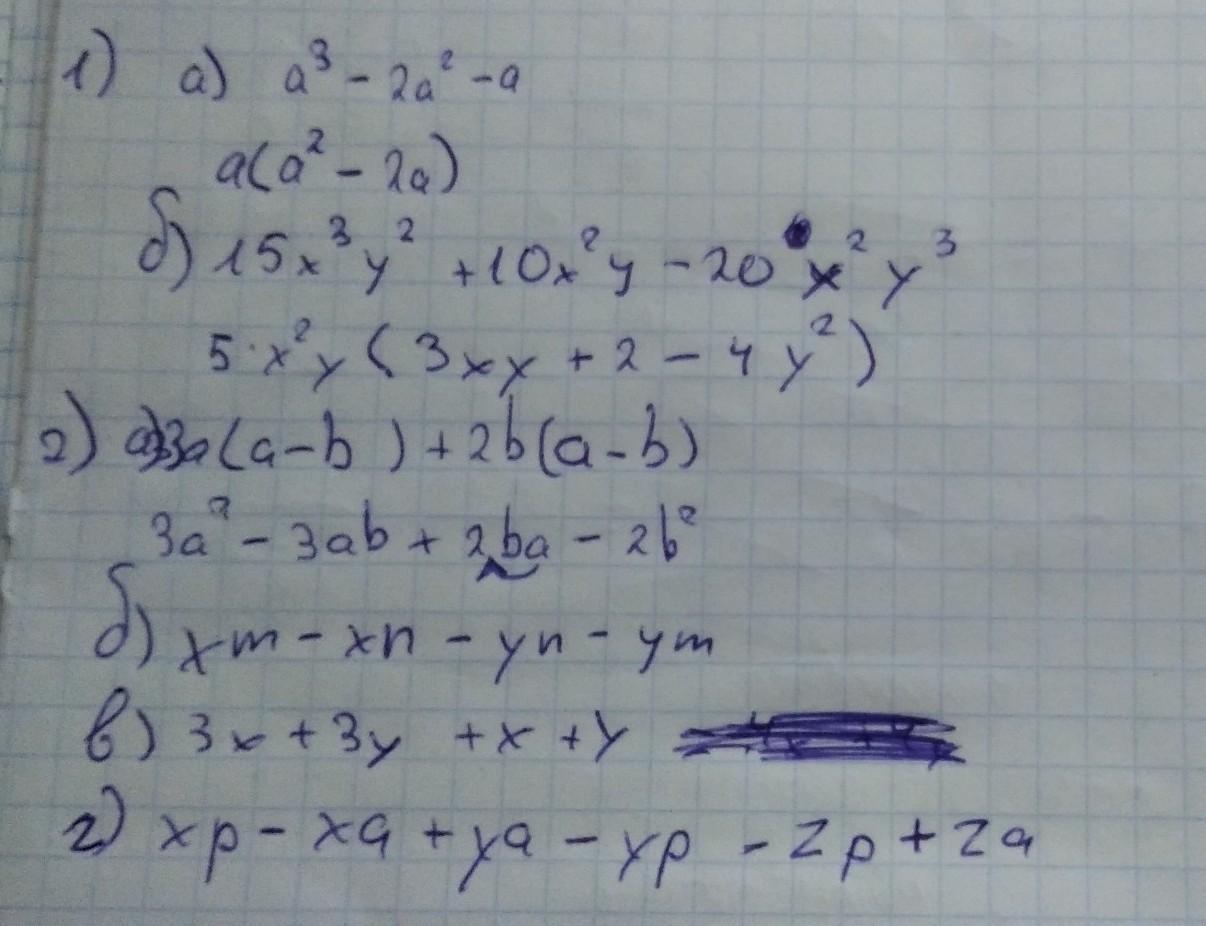 1) а) a³ - 2a² - a
a(a² - 2a)
б) 15x³y² + 10x²y - 20 x²y³
5·x²y (3xy + 2 - 4y²)
2) а) 3a(a-b) + 2b(a-b)
3a² - 3ab + 2ba - 2b²
б) xm - xn - yn - ym
в) 3x + 3y + x + y
г) xp - xa + ya - yp - zp + za